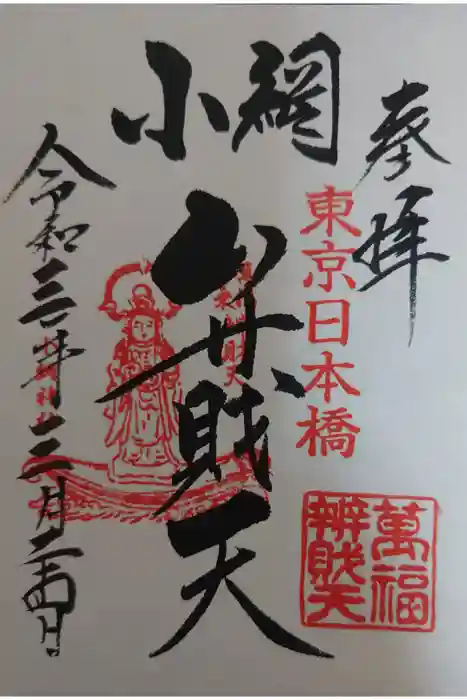 奉拝
東京日本橋
萬福
辨財天
小網
弁財天
令和三年三月二十四日